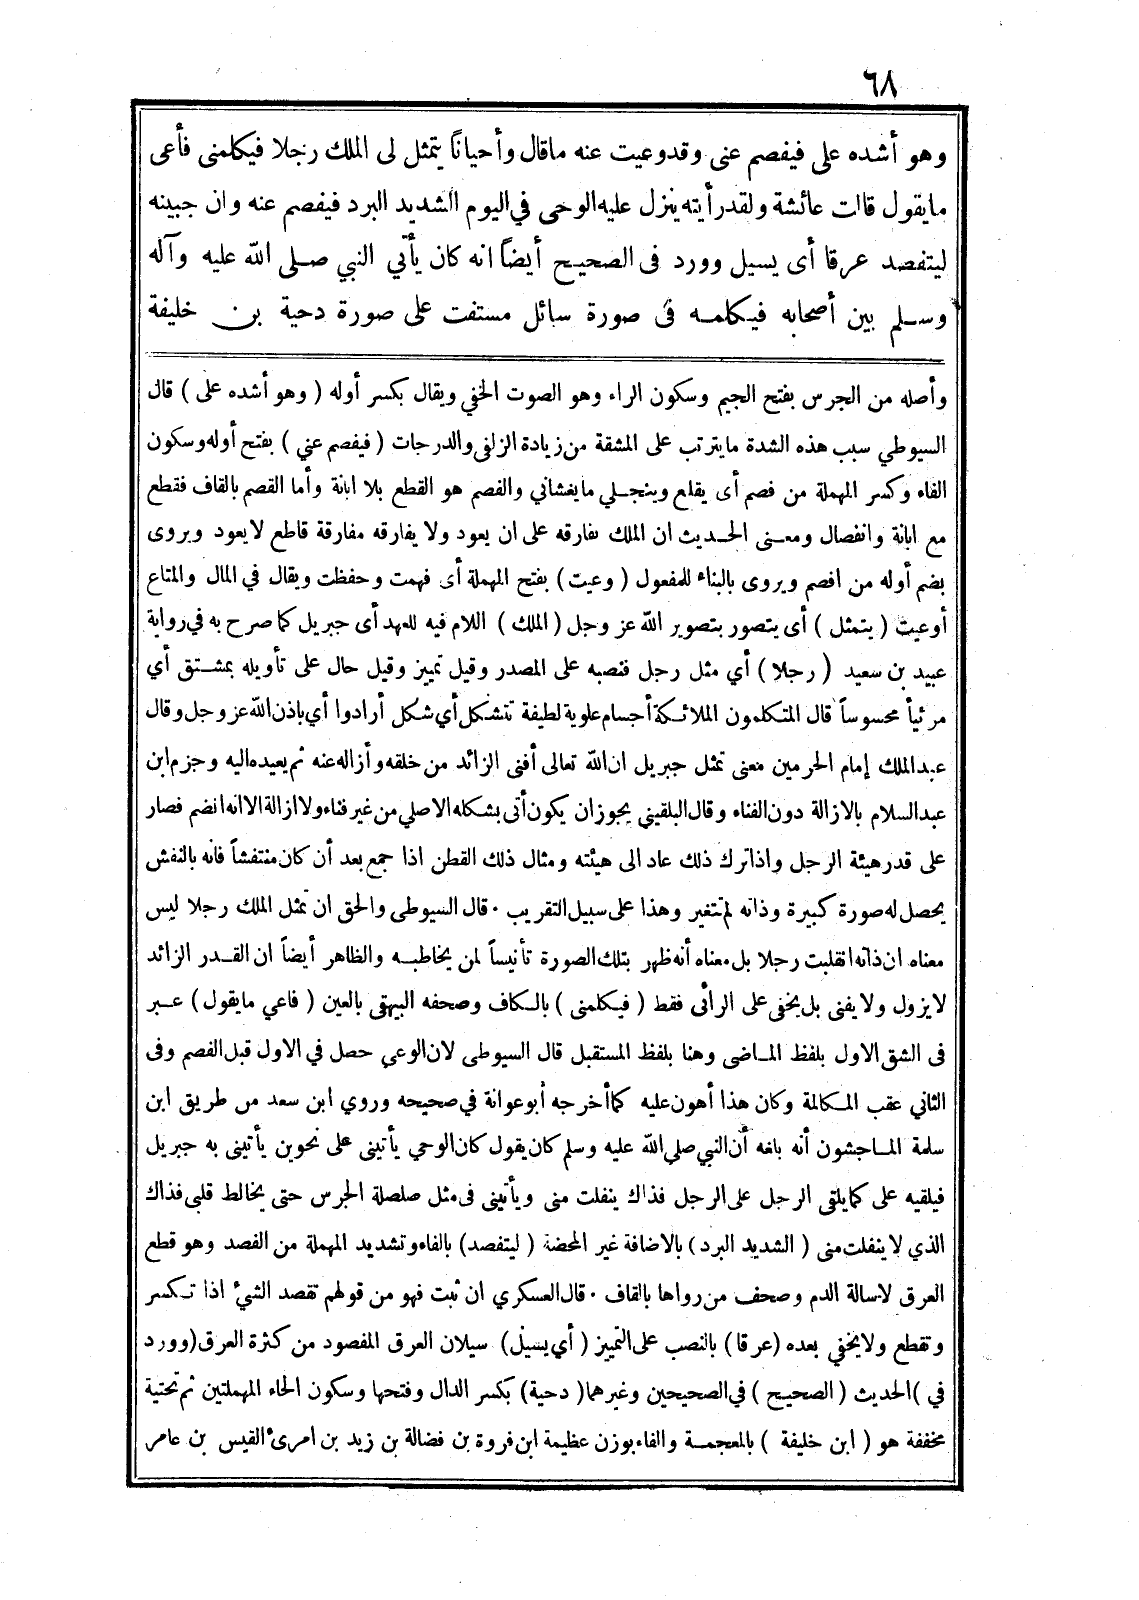 ٦٨
وهو أشده على فيفصم عنى وقدوعيت عنه ماقال وأحياناً يتمثل لى الملك رجلا فيكلمنى فأعى
مايقول قالت عائشة ولقدرأيته ينزل عليه الوحى في اليوم الشديد البرد فيفصم عنه وان جبينه
ليتفصد عرقا أى يسيل وورد فى الصحيح أيضاً انه كان يأتي النبي صلى الله عليه وآله
وسلم بين أصحابه فيكلمه فى صورة سائل مستفت على صورة دحية بن خليفة
وأصله من الجرس بفتح الجيم وسكون الراء وهو الصوت الخفي ويقال بكسر أوله ( وهو أشده على ) قال
السيوطي سبب هذه الشدة مايترتب على المشقة من زيادة الزلفى والدرجات ( فيفصم عني ) بفتح أوله وسكون
الفاء وكسر المهملة من فصم أى يقلع وينجلي مايغشاني والفصم هو القطع بلا ابانة وأما القصم بالقاف فقطع
مع ابانة وانفصال ومعنى الحديث ان الملك يفارقه على ان يعود ولا يفارقه مفارقة قاطع لايعود ويروى
بضم أوله من افصم ويروى بالبناء للمفعول ( وعيت ) بفتح المهملة أى فهمت وحفظت ويقال في المال والمتاع
أوعيت ( يتمثل ) أى يتصور بتصوير الله عز وجل ( الملك ) اللام فيه للعهد أى جبريل كما صرح به في رواية
عبيد بن سعيد ( رجلا ) أي مثل رجل فنصبه على المصدر وقيل تمييز وقيل حال على تأويله بمشتق أي
مرئياً محسوساً قال المتكلمون الملائكة أجسام علوية لطيفة تتشكل أي شكل أرادوا أي باذن الله عز وجل وقال
عبدالملك إمام الحرمين معنى تمثل جبريل ان الله تعالى أفنى الزائد من خلقه وأزاله عنه ثم يعيده اليه وجزم ابن
عبدالسلام بالازالة دون الفناء وقال البلقيني يجوز ان يكون أتى بشكله الاصلي من غير فناء ولا ازالة الا انه انضم فصار
على قدر هيئة الرجل واذا ترك ذلك عاد الى هيئته ومثال ذلك القطن اذا جمع بعد أن كان منتفشاً فانه بالنفش
يحصل له صورة كبيرة وذاته لم تتغير وهذا على سبيل التقريب . قال السيوطى والحق ان تمثل الملك رجلا ليس
معناه ان ذاته انقلبت رجلا بل معناه أنه ظهر بتلك الصورة تأنيساً لمن يخاطبه والظاهر أيضاً ان القدر الزائد
لايزول ولا يفنى بل يخفى على الرأئى فقط ( فيكلمنى ) بالكاف وصحفه البيهقى بالعين ( فاعي مايقول ) عبر
فى الشق الاول بلفظ الماضى وهنا بلفظ المستقبل قال السيوطى لان الوعي حصل في الاول قبل الفصم وفى
الثاني عقب المكالمة وكان هذا أهون عليه كما أخرجه أبو عوانة في صحيحه وروي ابن سعد من طريق ابن
سلمة الماجشون أنه بلغه أن النبي صلي الله عليه وسلم كان يقول كان الوحي يأتينى على نحوين يأتينى به جبريل
فيلقيه على كما يلقى الرجل على الرجل فذاك ينفلت منى ويأتينى فى مثل صلصلة الجرس حتى يخالط قلبى فذاك
الذي لا ينفلت منى ( الشديد البرد ) بالاضافة غير المحضة ( ليتفصد ) بالفاء وتشديد المهملة من الفصد وهو قطع
العرق لاسالة الدم وصحف من رواها بالقاف . قال العسكري ان ثبت فهو من قولهم تقصد الشئ اذا تكسر
وتقطع ولا يخفي بعده ( عرقا ) بالنصب على التمييز ( أي يسيل ) سيلان العرق المفصود من كثرة العرق ( وورد
في ) الحديث ( الصحيح ) في الصحيحين وغيرهما ( دحية ) بكسر الدال وفتحها وسكون الحاء المهملتين ثم تحتية
مخففة هو ( ابن خليفة ) بالمعجمة والفاء بوزن عظيمة ابن فروة بن فضالة بن زيد بن امرئ القيس بن عامر